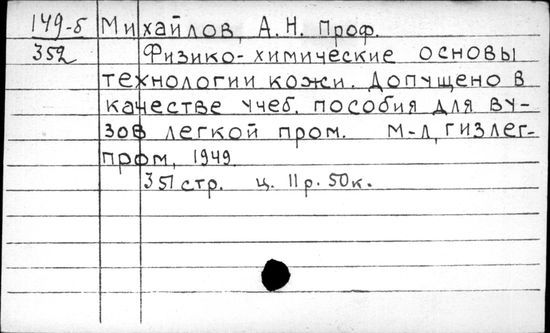 149-б Михайлов, А.Н. Проф.
352 Физико-химические основы
технологии кожи. Допущено в
качестве учеб. пособия для ву-
зов легкой пром. М-Л, Гизлег-
пром, 1949.
351 стр. ц. 11 р. 50 к.